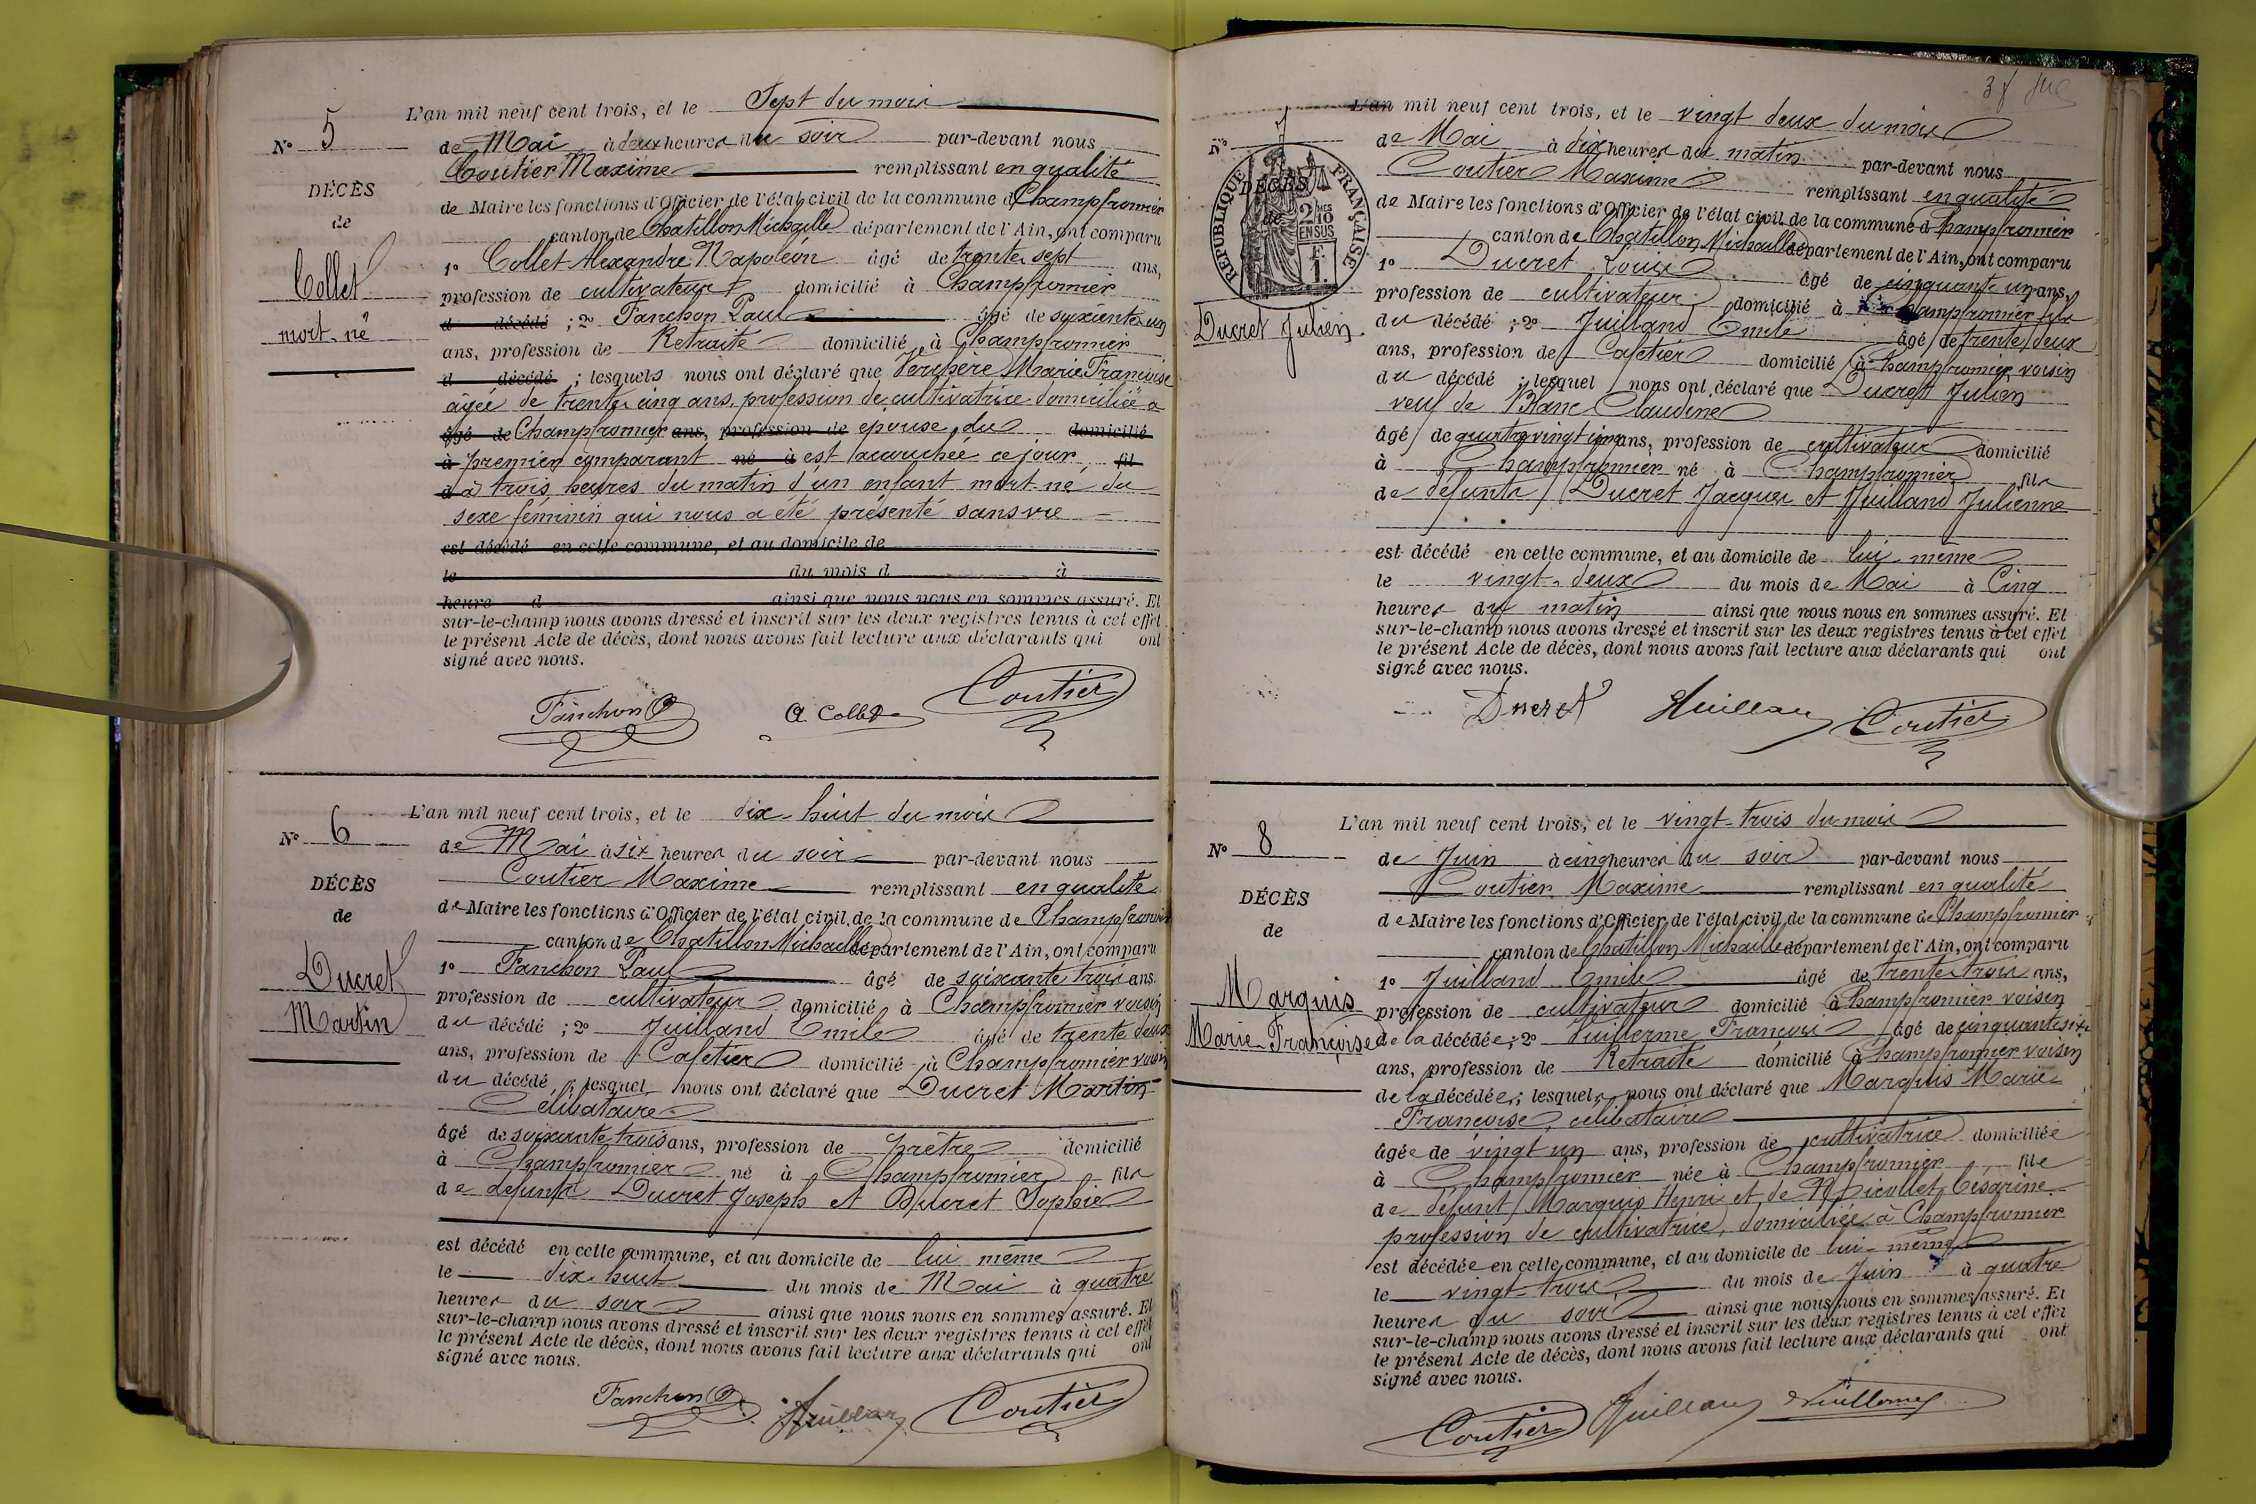 N° 5
DÉCÈS
de
Collet
mort-né
L'an mil neuf cent trois, et le Sept du mois
de Mai à deux heures du soir par-devant nous
Coutier Maxime remplissant en qualité
de Maire les fonctions d'Officier de l'état civil de la commune d Champfromier
canton de Chatillon Michaille département de l'Ain, ont comparu
1° Collet Alexandre Napoléon âgé de trente sept ans,
profession de cultivateur domicilié à Champfromier
d décédé ; 2° Fanchon Paul âgé de soixante
ans, profession de Retraité domicilié à Champfromier
d décédé ; lesquels nous ont déclaré que Verchère Marie Francoise
âgée de trente cinq ans, profession de cultivatrice domiciliée à
âgé de Champfromier ans, profession de épouse du domicilié
à premier comparant né à est accouchée ce jour fil
d à trois heures du matin d'un enfant mort-né du
sexe féminin qui nous a été présenté sans vie
est décédé en cette commune, et au domicile de
le du mois d à
heure d ainsi que nous nous en sommes assuré. Et
sur-le-champ nous avons dressé et inscrit sur les deux registres tenus à cet effet
le présent Acte de décès, dont nous avons fait lecture aux déclarants qui ont
signé avec nous.
Fanchon P A. Collet Coutier
N° 6
DÉCÈS
de
Ducret
Martin
L'an mil neuf cent trois, et le dix-huit du mois
de Mai à six heures du soir par-devant nous
Coutier Maxime remplissant en qualité
de Maire les fonctions d'Officier de l'état civil de la commune de Champfromier
canton de Chatillon Michaille département de l'Ain, ont comparu
1° Fanchon Paul âgé de soixante trois ans
profession de cultivateur domicilié à Champfromier voisin
du décédé ; 2° Juilland Emile âgé de trente deux
ans, profession de Cafetier domicilié à Champfromier voisin
du décédé ; lesquel nous ont déclaré que Ducret Martin
Célibataire
âgé de soixante trois ans, profession de prêtre domicilié
à Champfromier né à Champfromier fils
de defunts Ducret Joseph et Ducret Sophie
est décédé en cette commune, et au domicile de lui même
le dix-huit du mois de Mai à quatre
heures du soir ainsi que nous nous en sommes assuré. Et
sur-le-champ nous avons dressé et inscrit sur les deux registres tenus à cet effet
le présent Acte de décès, dont nous avons fait lecture aux déclarants qui ont
signé avec nous.
Fanchon P Juilland Coutier
38
N° 7
DÉCÈS
de
RÉPUBLIQUE FRANÇAISE
2/10 EN SUS
F. 1.
Ducret Julien
L'an mil neuf cent trois, et le vingt deux du mois
de Mai à dix heures du matin par-devant nous
Coutier Maxime remplissant en qualité
de Maire les fonctions d'Officier de l'état civil de la commune d Champfromier
canton de Chatillon Michaille département de l'Ain, ont comparu
1° Ducret Louis âgé de cinquante un ans,
profession de cultivateur domicilié à Champfromier fils
du décédé ; 2° Juilland Emile âgé de trente deux
ans, profession de Cafetier domicilié à Champfromier voisin
du décédé ; lesquel nous ont déclaré que Ducret Julien
veuf de Blanc Claudine
âgé de quatre vingt ans, profession de cultivateur domicilié
à Champfromier né à Champfromier fils
de défunts Ducret Jacques et Juilland Julienne
est décédé en cette commune, et au domicile de lui même
le vingt-deux du mois de Mai à Cinq
heures du matin ainsi que nous nous en sommes assuré. Et
sur-le-champ nous avons dressé et inscrit sur les deux registres tenus à cet effet
le présent Acte de décès, dont nous avons fait lecture aux déclarants qui ont
signé avec nous.
Ducret Juilland Coutier
N° 8
DÉCÈS
de
Marquis
Marie-Françoise
L'an mil neuf cent trois, et le vingt-trois du mois
de Juin à cinq heures du soir par-devant nous
Coutier Maxime remplissant en qualité
de Maire les fonctions d'Officier de l'état civil de la commune de Champfromier
canton de Chatillon Michaille département de l'Ain, ont comparu
1° Juilland Emile âgé de trente trois ans,
profession de cultivateur domicilié à Champfromier voisin
de la décédée ; 2° Vuillerme François âgé de cinquante six
ans, profession de Retraité domicilié à Champfromier voisin
de la décédée ; lesquels nous ont déclaré que Marquis Marie
Françoise, célibataire
âgée de vingt un ans, profession de cultivatrice domiciliée
à Champfromier née à Champfromier fille
de défunt Marquis Henri et de Nicollet Césarine
profession de cultivatrice, domiciliée à Champfromier
est décédée en cette commune, et au domicile de lui-même
le vingt-trois du mois de Juin à quatre
heures du soir ainsi que nous nous en sommes assuré. Et
sur-le-champ nous avons dressé et inscrit sur les deux registres tenus à cet effet
le présent Acte de décès, dont nous avons fait lecture aux déclarants qui ont
signé avec nous.
Coutier Juilland Vuillerme